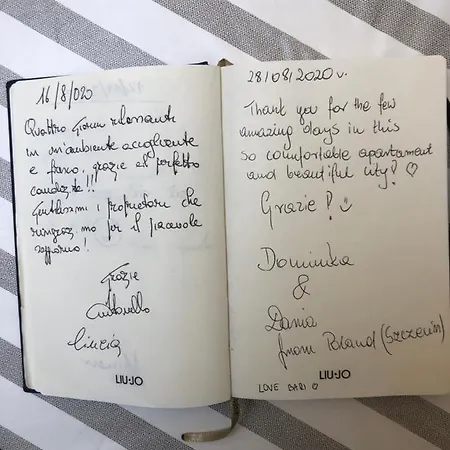 16/8/020
Quattro giorni rilassante
in un'ambiente accogliente
e fresco, grazie al perfetto
Gentilissimi i proprietari che
ringraziamo per il piacevole
soggiorno!
Grazie
Antonello
Cinzia
LIU·JO
28/08/2020 r.
Thank you for the few
amazing days in this
so comfortable apartament
and beautiful city! ♡
Grazie! :)
Dominika
&
Daria
from Poland (Szczecin)
LIU·JO
LOVE BARI ♡